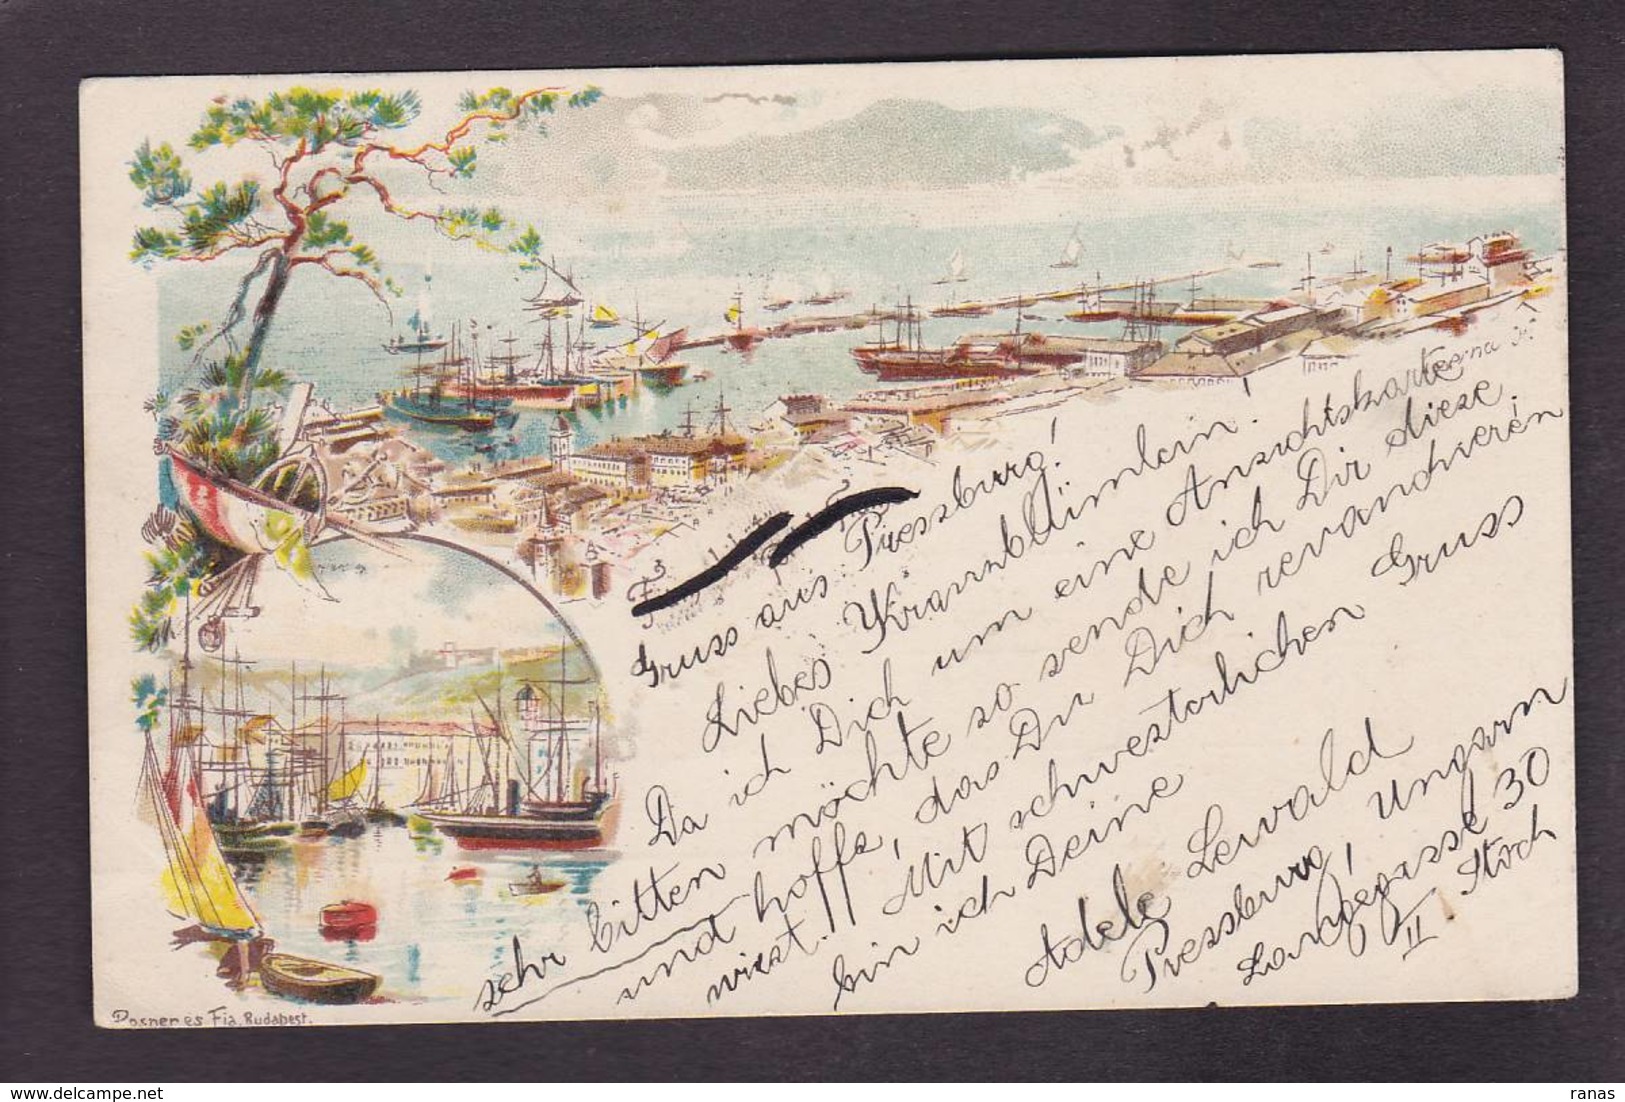 Gruss aus Pressburg!
Liebes Kranzblümlein!
Da ich Dich um eine Ansichtskarte
sehr bitten möchte so sende ich Dir diese
und hoffe, das Du Dich revanchieren
wirst. Mit schwesterlichen Gruss
bin ich Deine
Adele Lewald
Pressburg, Ungarn
Langegasse 30
II. Stock
Posner és Fia, Budapest.
ranas